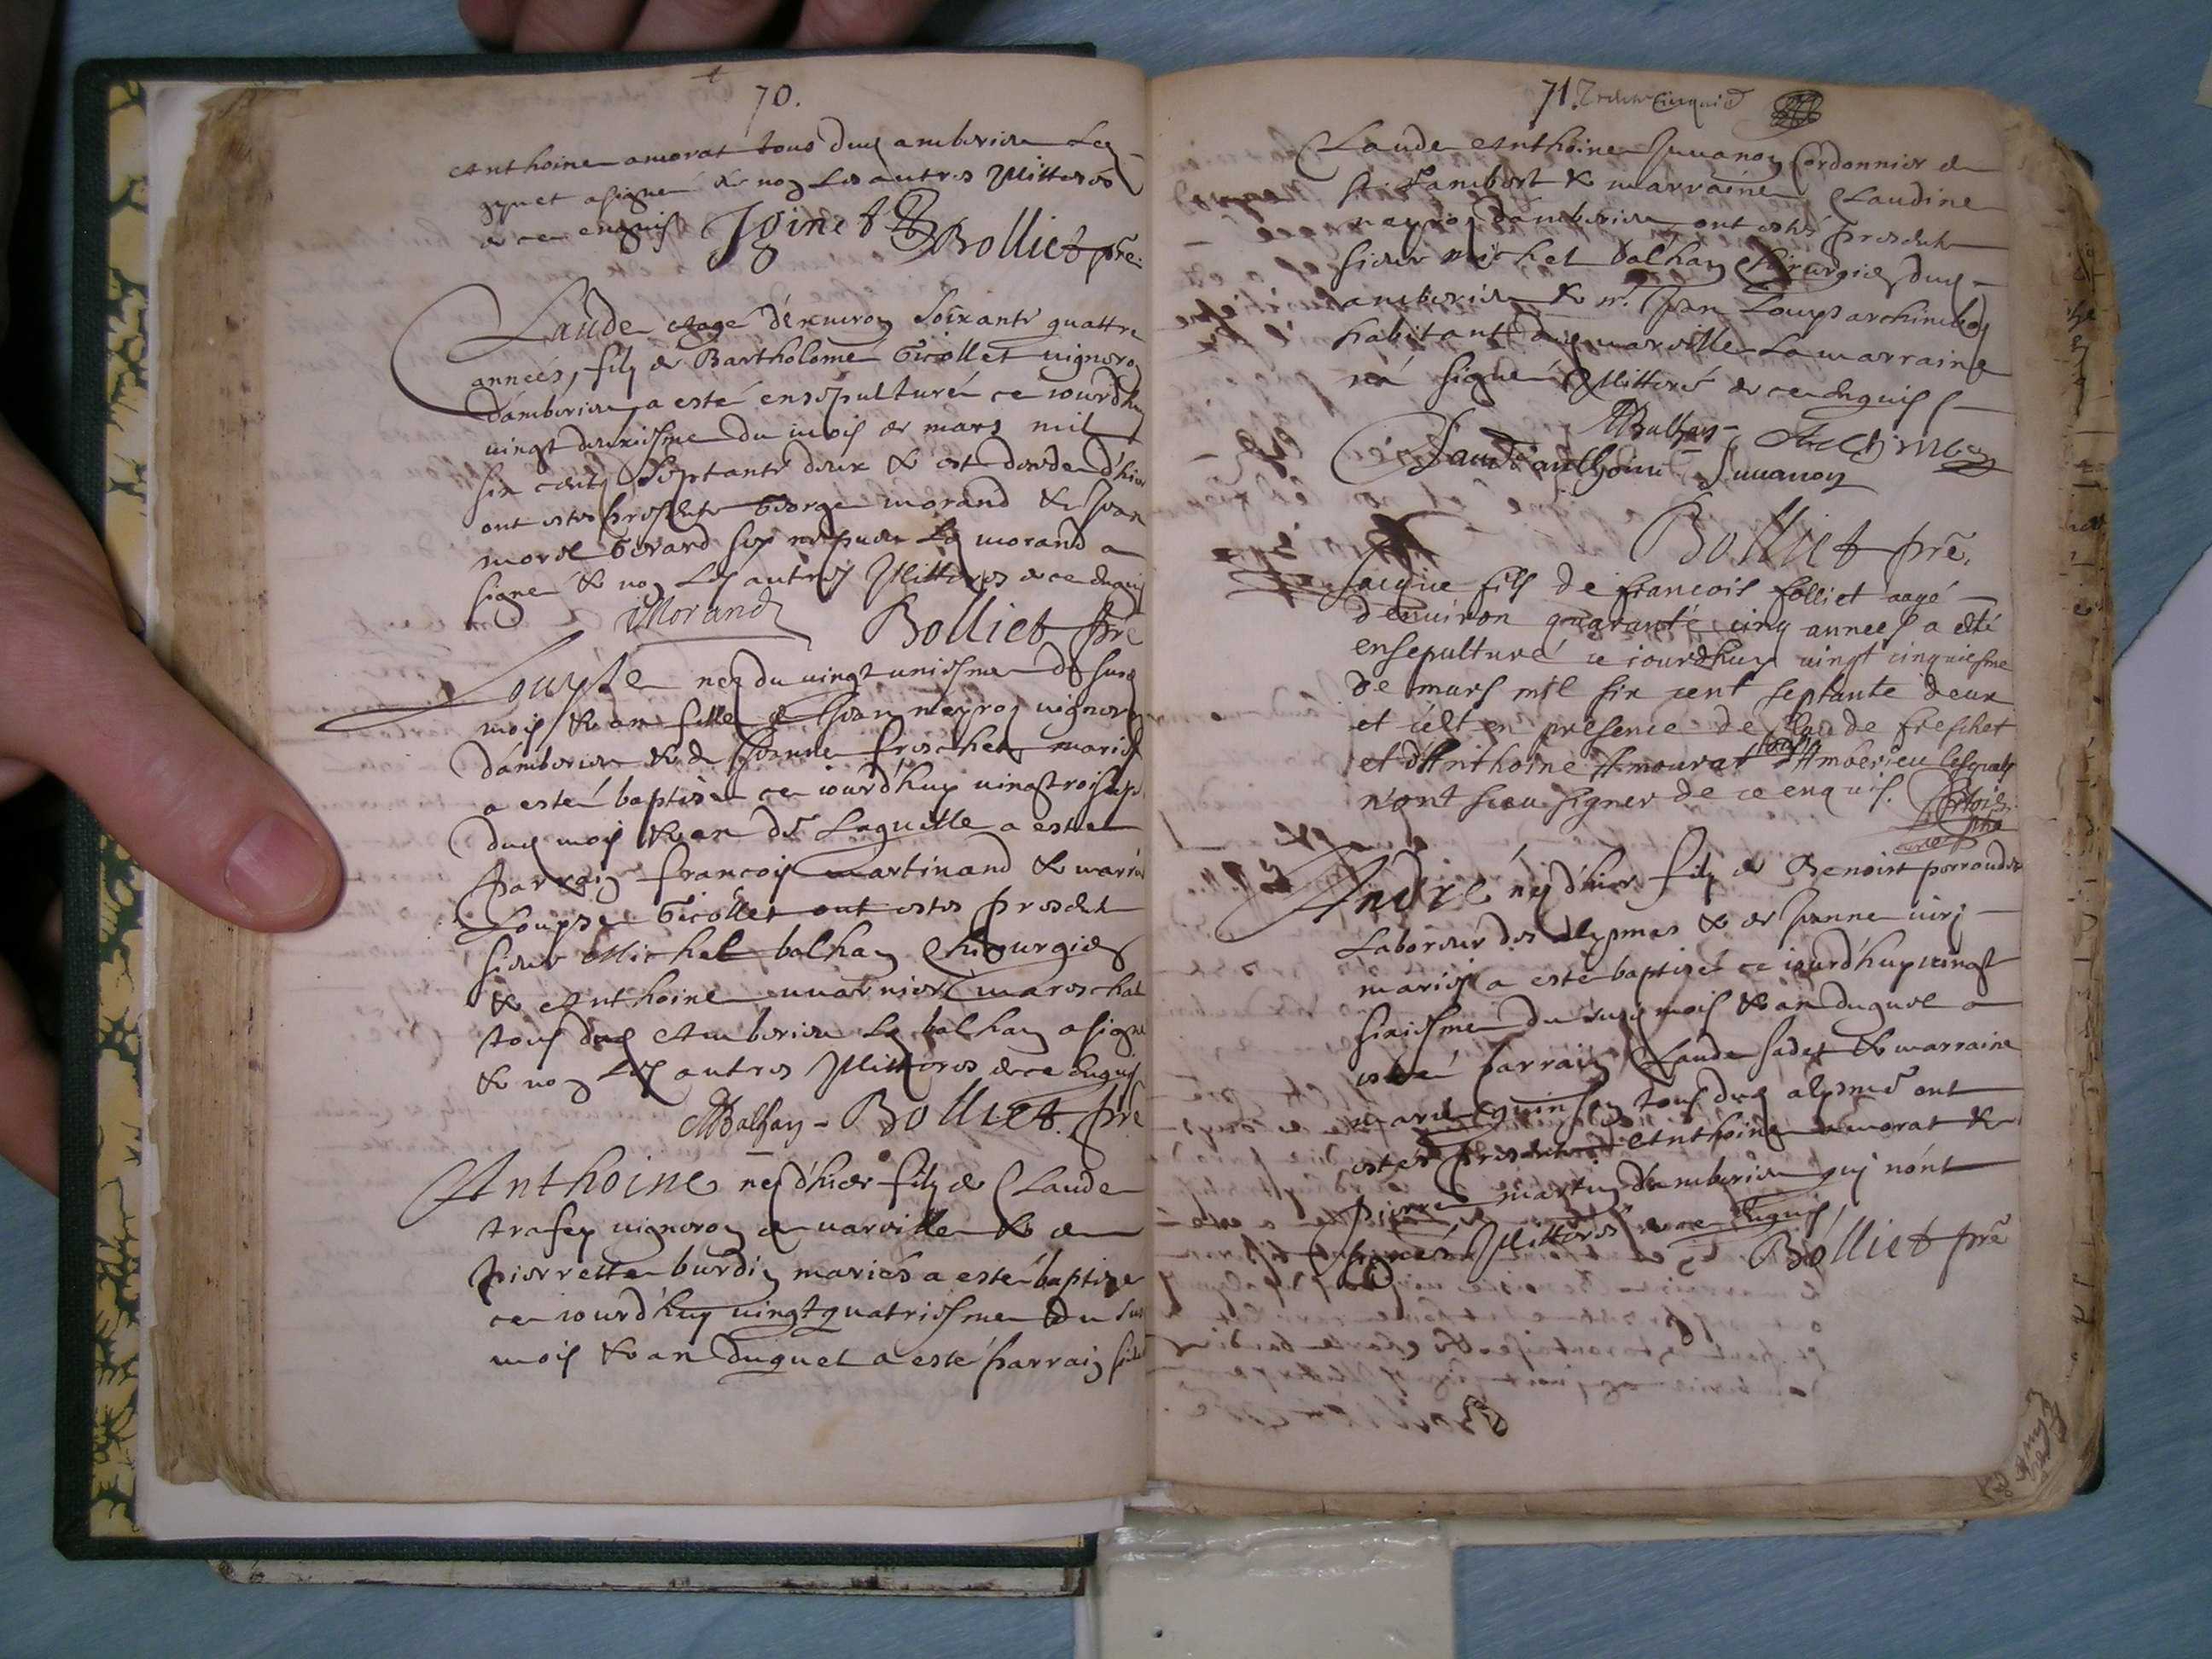 70.
Anthoine amorat tous dud amberieu Led
gynet a signé & non Les autres Illitteres
de ce enquis JGinet Bolliet pre.
Claude eagé d'enuiron Soixante quattre
années, filz de Bartholomé Gicollet uigneron
d'amberieu, a esté ensepulturé ce iourd'huy
uingt deuxisme du mois de mars mil
six cents Septante deux & est decedé d'hier
ont estes presents George morand & Jean
morel Gerard Led morand a
signé & non Les autres Illitteres de ce enquis
Morand Bolliet pre
Louyse nee du uingt uniesme du susd
mois & an fille de Jean neyron uigneron
d'amberieu & de Jeanne freschet mariés
a esté baptisée ce iourd'huy uingt troisiesme
dud mois & an de Laquelle a esté
parrain francois martinand & marraine
Louyse Gicollet ont estes presents
sieur Michel balhan Chirurgien
& Anthoine uuarnier mareschal
tous dud Amberieu Led balhan a signé
& non Les autres Illitteres de ce enquis
MBalhan - Bolliet pre
Anthoine ney d'hier filz de Claude
trafey uigneron de uareille & de
pierrette burdin mariés a esté baptisé
ce iourd'huy uingt quatriesme du sus
mois & an duquel a esté parrain sieur
71.
Claude Anthoine Juuanon Cordonnier de
St Lambert & marraine Claudine
neyron d'amberieu ont estés presents
sieur michel balhan Chirurgien dud
amberieu & mr. Jean Louys archimbod
habitant de uareille La marraine
na signé Illitteré de ce enquis
MBalhan - Archimbod
Claude anthoine Juuanon
Bolliet pre.
Jacque fils de francois folliet aagé
d'enuiron quarante cinq annees a esté
ensepulturé ce iourdhuy uingt cinquiesme
de mars mil six cent septante deux
et c'est en presence de Claude freschet
et d'Anthoine Amourat tous d'Amberieu lesquels
n'ont sceu signer de ce enquis.
André ney d'hier filz de Benoist perroudet
Laboreur des alymes & de Jeanne
mariés a esté baptizé ce iourd'huy uingt
sixiesme du susd mois & an duquel a
esté parrain Claude sadet & marraine
marie guinson tous dud alymes ont
estes presents Anthoine amorat &
pierre martin d'amberieu qui n'ont
signés Illitteres de ce enquis
Bolliet pre